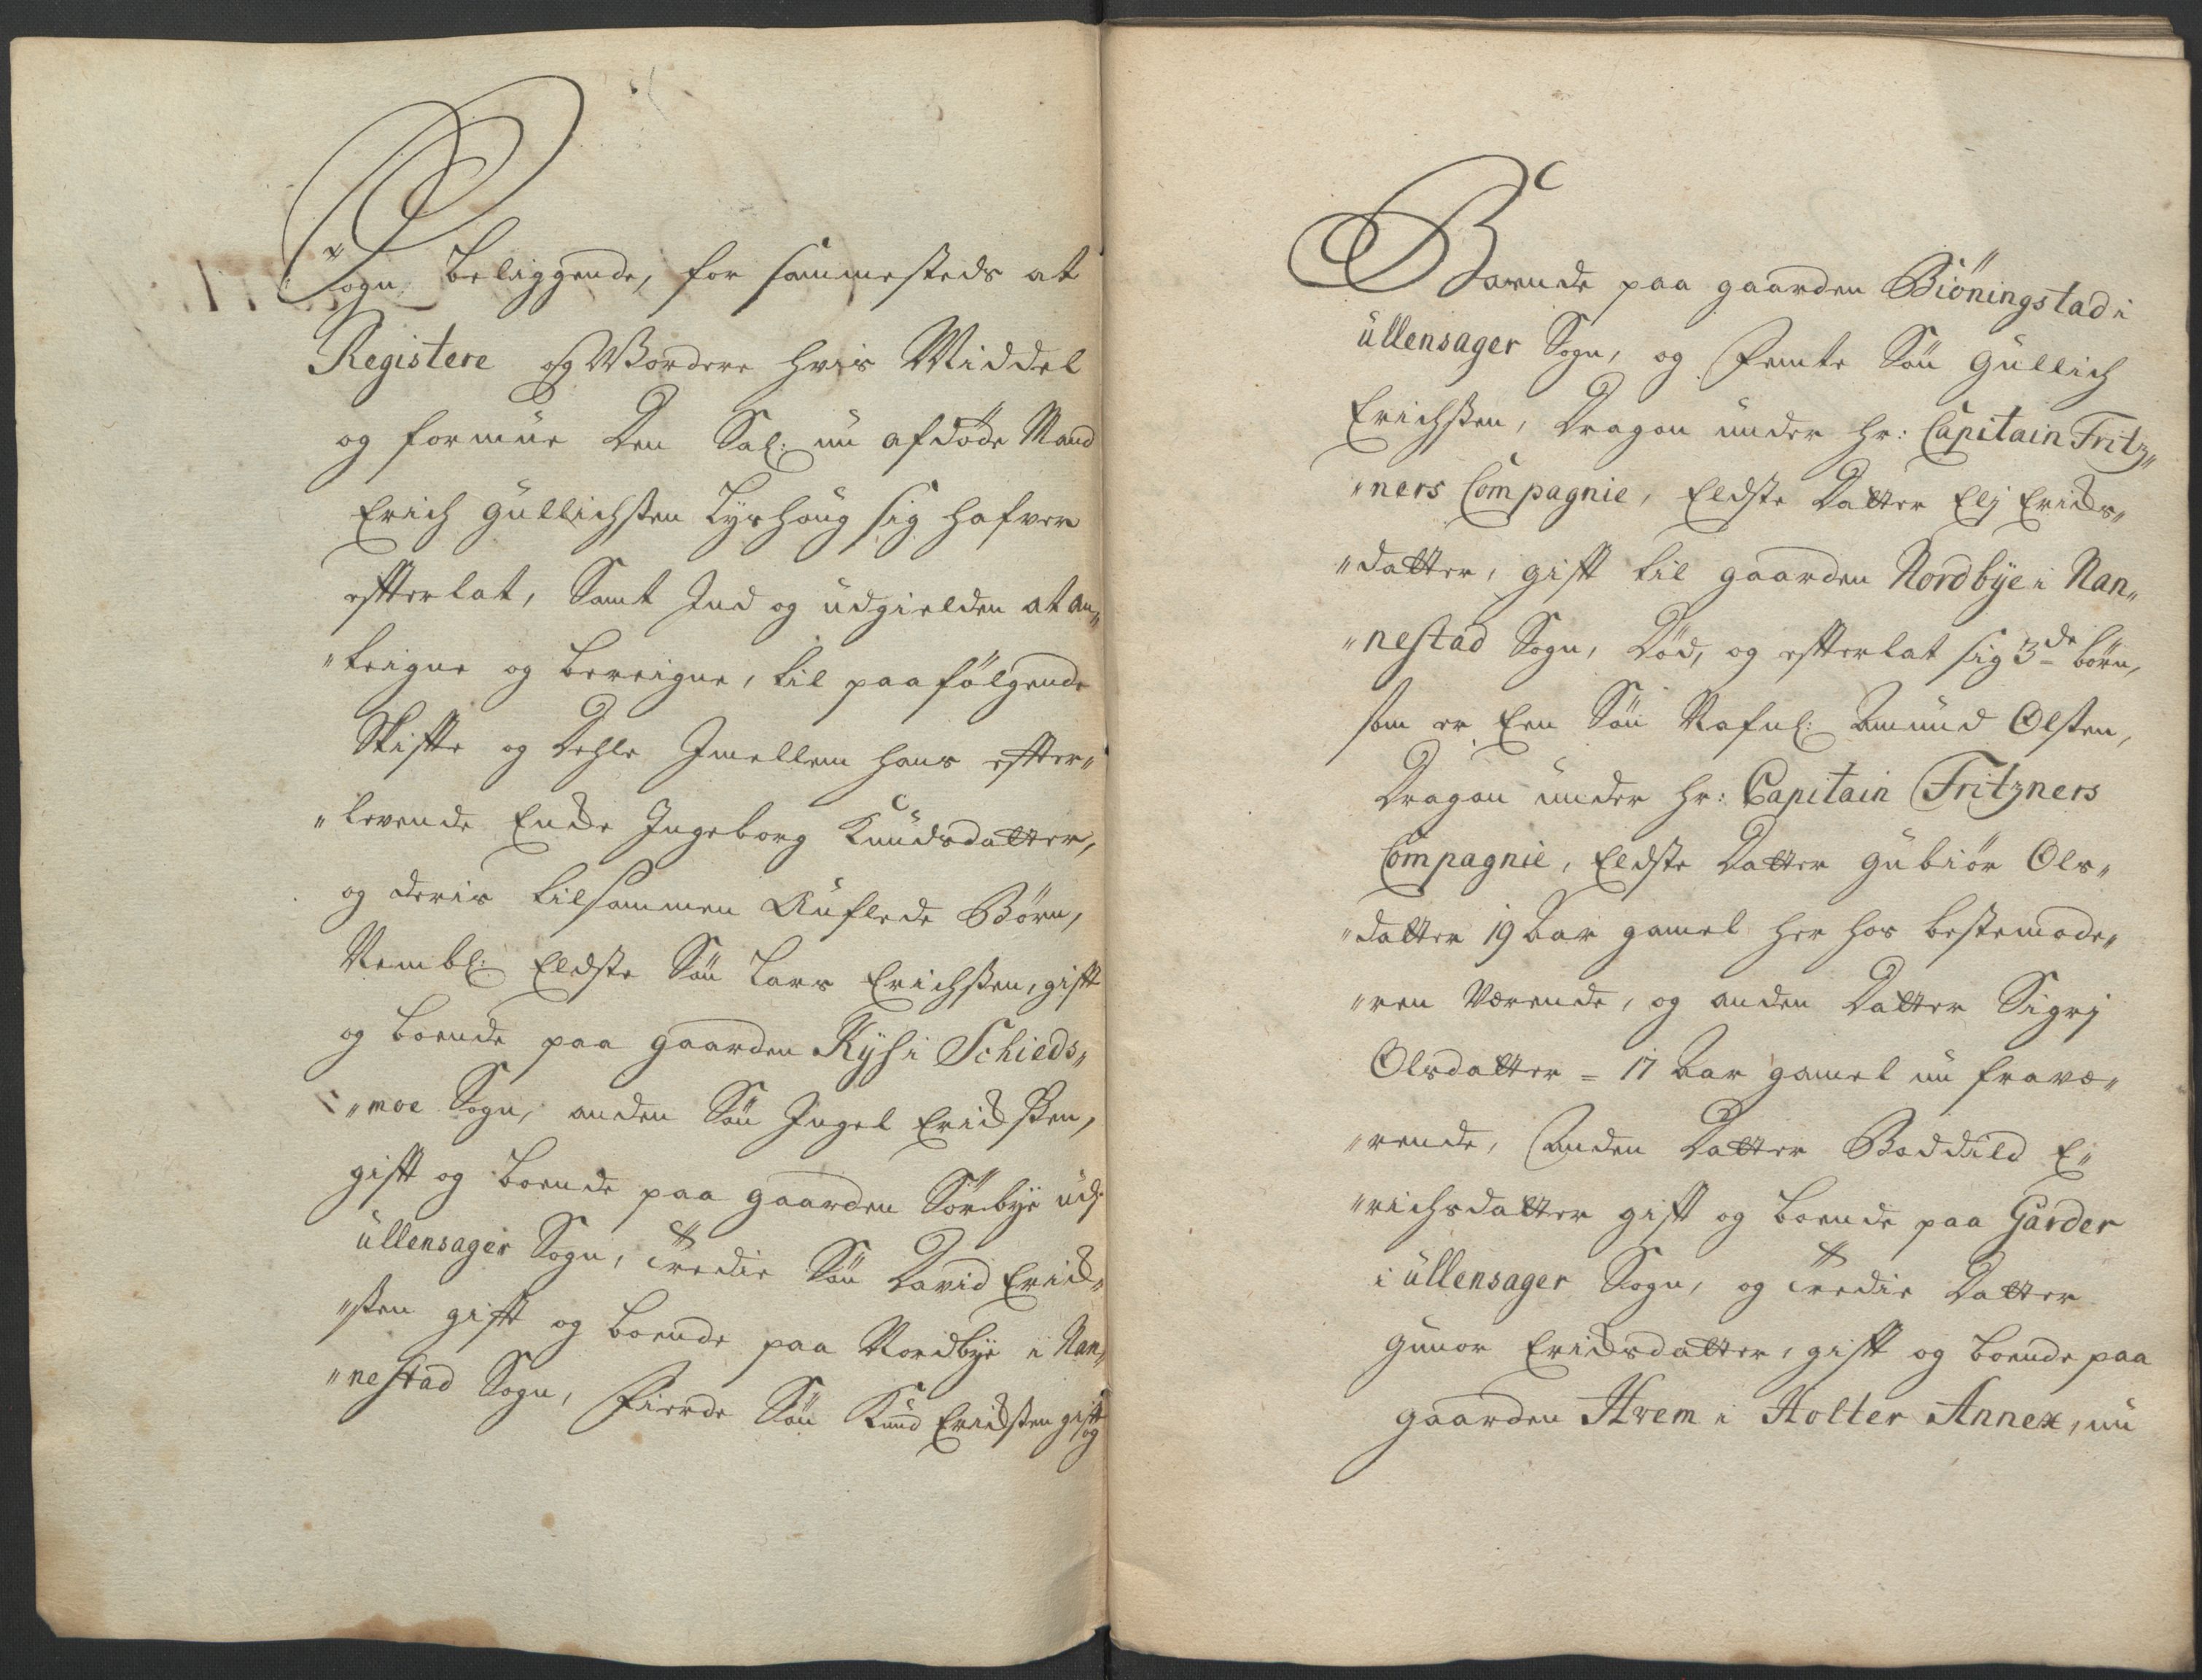 Sogn, beliggende, for sammesteds at
Registere og Vordere hvis Middel
og formue Den Sal: nu afdøde Mand
Erich Gullichsen Lyshoug sig hafver
effterlat, Samt Ind og udgielden at an„
„teigne og bereigne, til paafølgende
Skiffte og Dehle Imellem hans effter„
„levende Encke Ingeborg Knudsdatter,
og deris tilsammen Auflede Børn,
Nembl: Eldste Søn Lars Erichsen, gifft
og boende paa gaarden Ryh i Schieds„
„moe Sogn, anden Søn Ingel Ericksen,
gifft og boende paa gaarden Sørbye udj
ullensager Sogn, Tredie Søn David Erick„
„sen gifft og boende paa Nordbye i Nan„
„nestad Sogn, Fierde Søn Knud Ericksen gifft
og
Boende paa gaarden Biöningstad i
ullensager Sogn, og Femte Søn Gullich
Erichsen, Dragon under Hr: Capitain Fritz„
„ners Compagnie, Eldste Datter Elj Ericks„
„datter, gifft til gaarden Nordbye i Nan„
„nestad Sogn, Død, og effterlat sig 3de börn,
som er Een Søn Nafnl: Amund Olsen,
Dragon under Hr: Capitain Fritzners
Compagnie, Eldste Datter Gubiør Ols„
„datter 19 Aar gamel her hos bestemode„
„ren Værende, og anden Datter Sigrj
Olsdatter = 17 Aar gamel nu fravæ„
„rende, Anden Datter Boddild E„
„richsdatter gifft og boende paa Garder
i ullensager Sogn, og Tredie Datter
Gunor Ericksdatter, gifft og boende paa
gaarden Hvem i Holter Annex, nu